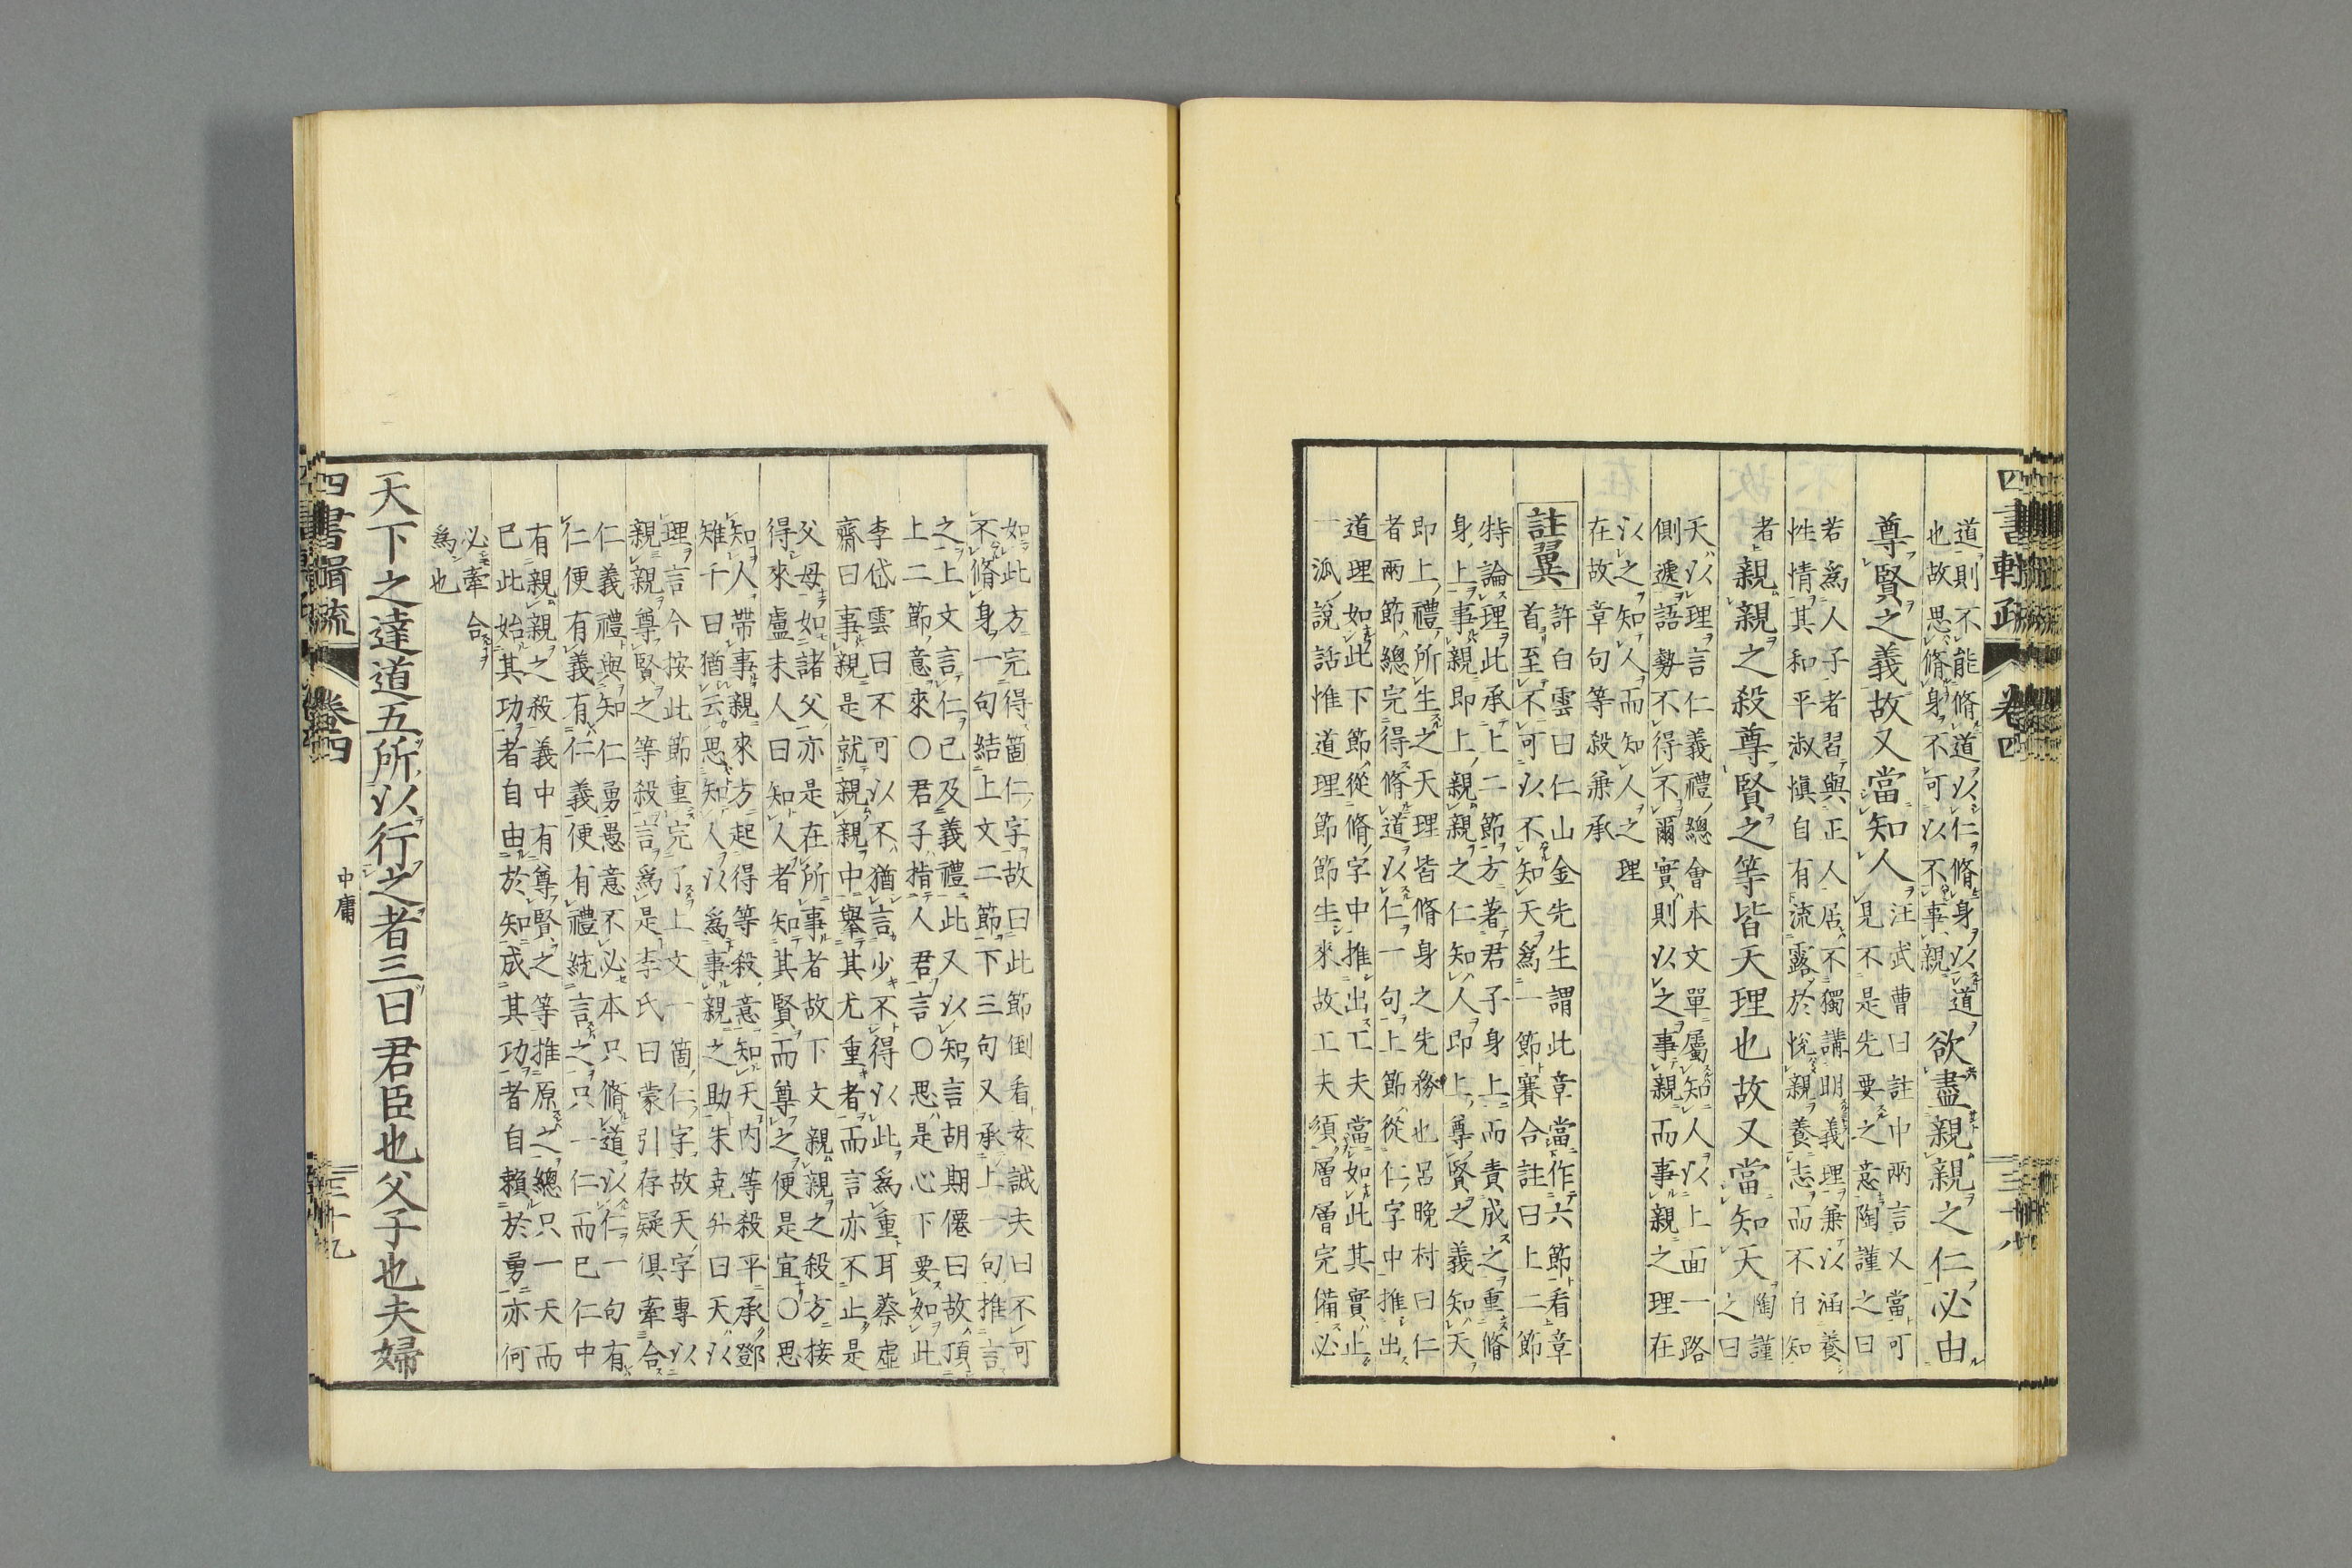 四書輯疏 卷四 三十八
道則不能脩道以仁脩身以道
也故思脩身不可以不事親
欲盡親親之仁必由
尊賢之義故又當知人
汪武曹曰註中兩言又當可
見不是先要之意陶謹之曰
若爲人子者習與正人居不獨講明義理兼以涵養
性情其和平淑愼自有流露於悅親養志而不自知
者
親親之殺尊賢之等皆天理也故又當知天
陶謹
之曰
天以理言仁義禮總會本文單屬知人以上面一路
側遞語勢不得不爾實則以之事親而事親之理在
以之知人而知人之理
在故章句等殺兼承
註翼
許白雲曰仁山金先生謂此章當作六節看章
首至不可以不知天爲一節賽合註曰上二節
特論理此承上二節方著君子身上而責成之重脩
身上事親即上親親之仁知人即上尊賢之義知天
即上禮所生之天理皆脩身之先務也呂晚村曰仁
者兩節總完得脩道以仁一句上節從仁字中推出
道理如此下節從脩字中推出工夫當如此其實止
一派說話惟道理節節生來故工夫須層層完備必
如此方完得箇仁字故曰此節倒看袁誠夫曰不可
不脩身一句結上文二節下三句又承上一句推言
之上文言仁已及義禮此又以知言胡期僊曰故頂
上二節意來〇君子指人君言〇思是心下要如此
李岱雲曰不可以不猶言少不得以此爲重耳蔡虛
齋曰事親是就親親中舉其尤重者而言亦不止是
父母如諸父亦是在所事者故下文親親之殺方接
得來盧未人曰知人者知其賢而尊之便是宜〇思
知人帶事親來方起得等殺意知天内等殺平承鄧
雉千曰猶云思知人以爲事親之助朱克升曰天以
理言今按此節重完了上文一箇仁字故天字專以
親親尊賢之等殺言爲是李氏曰蒙引存疑俱牽合
仁義禮與知仁勇愚意不必本只脩道以仁一句有
仁便有義有仁義便有禮統言之只一仁而已仁中
有親親之殺義中有尊賢之等推原之總只一天而
已此始其功者自由於知成其功者自賴於勇亦何
必牽合
爲也
天下之達道五所以行之者三曰君臣也父子也夫婦
四書輯疏 卷四 中庸 三十九